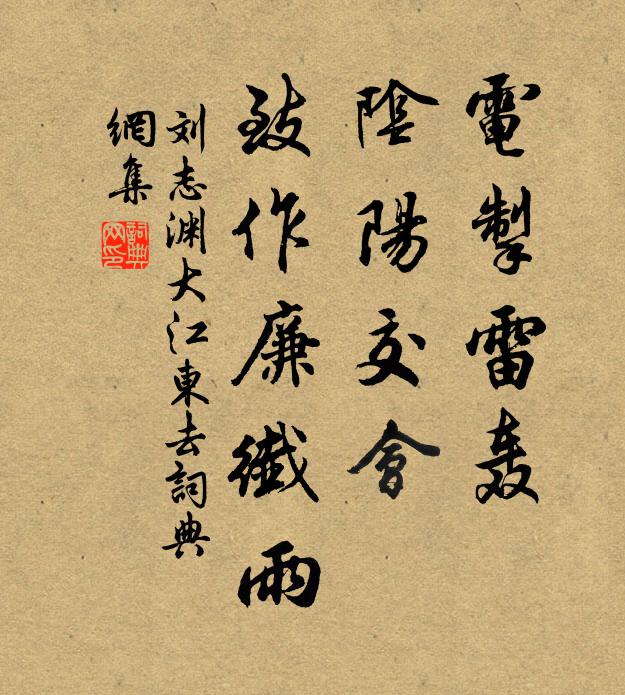 電掣雷轰
陰陽交會
致作廉纖雨
刘志渊大江東去詞典
網集
詞典
网印